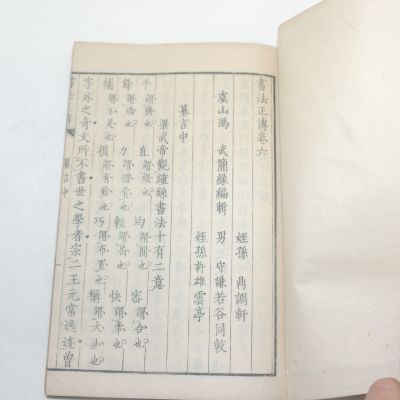 書法正傳卷六
虞山馮 武簡緣編輯 男 守謙若谷同較
姪孫 鼎調軒
姪孫許雄雲亭
纂言中
梁武帝觀鍾繇書法十有二意
平謂橫也 直謂縱也 均謂間也 密謂際也
鋒謂端也 力謂體也 輕謂屈也 快謂牽也
補謂不足也 損謂有餘也 巧謂布置也 稱謂大小也
字外之奇文所不書世之學者宗二王元常逸迹曾
書法正傳
纂言中
一